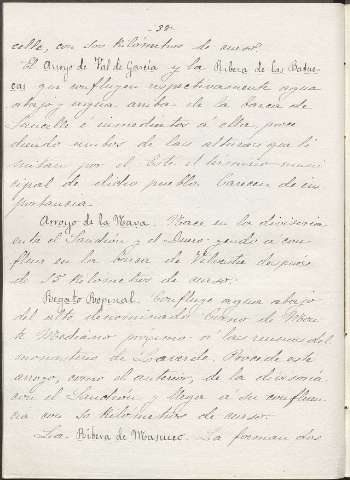 -32-
celle, con sus kilómetros de curso.
El Arroyo de Val de García y la Ribera de las Batue-
cas que confluyen respectivamente agua
abajo y agua arriba de la barca de
Saucelle é inmediatos á ella, proce
diendo ambos de las alturas que li
mitan por el Este el término muni
cipal de dicho pueblo. Carecen de im
portancia.
Arroyo de la Nava. Nace en la divisoria
entre el y el Duero yendo á con
fluir en la barca de Vilvestre despues
de 15 kilómetros de curso.
Regato Respinal. Confluye agua abajo
del alto denominado de Mon
te Mediano próximo á las ruinas del
monasterio de Laverde. Procede este
arroyo, como el anterior, de la divisoria
con el y llega á su confluen
cia con 10 kilómetros de curso.
La Ribera de Masueco. La forman dos